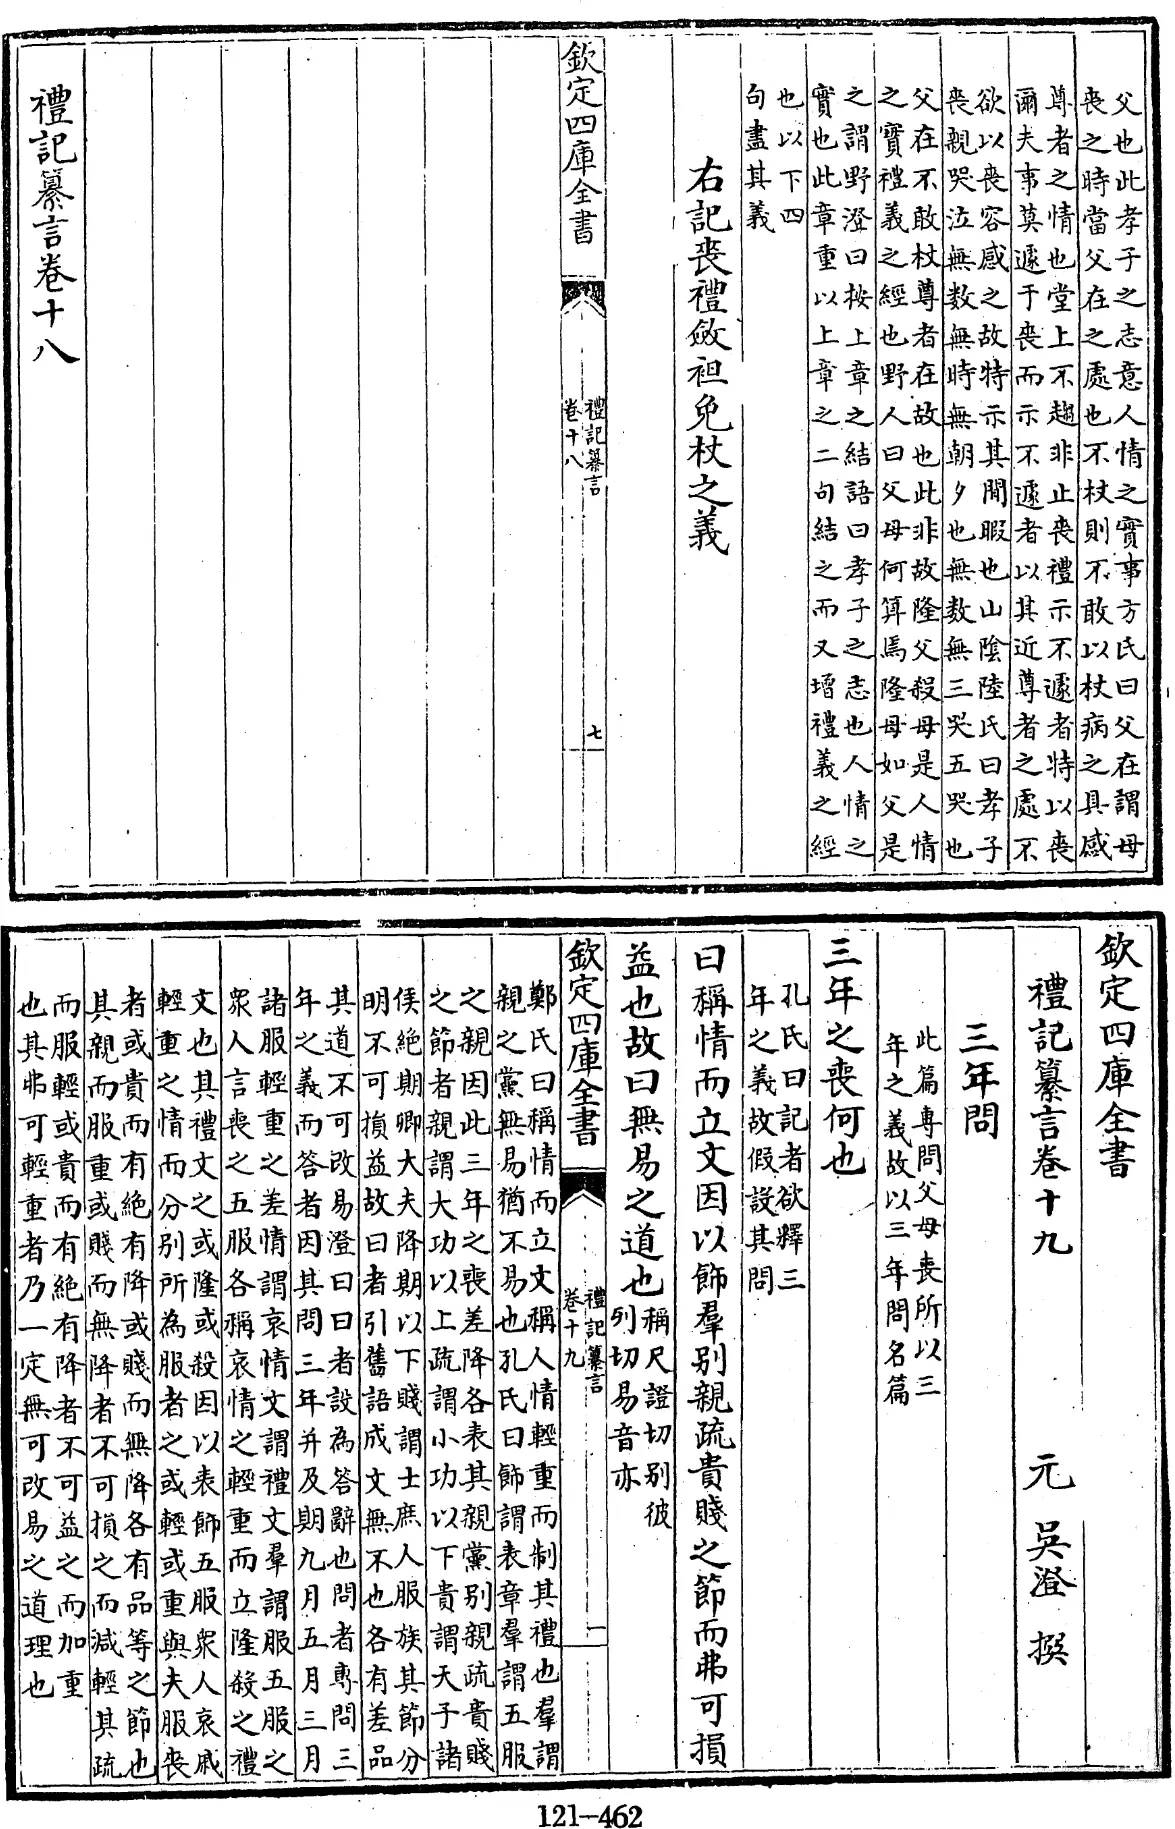 父也此孝子之志意人情之實事方氏曰父在謂母
喪之時當父在之處也不杖則不敢以杖病之具慼
尊者之情也堂上不趨非止喪禮示不遽者特以喪
爾夫事莫遽于喪而示不遽者以其近尊者之處不
欲以喪容感之故特示其閒暇也山陰陸氏曰孝子
喪親哭泣無數無時無朝夕也無數無三哭五哭也
父在不敢杖尊者在故也此非故隆父殺母是人情
之實禮義之經也野人曰父母何算焉隆母如父是
之謂野澄曰按上章之結語曰孝子之志也人情之
實也此章重以上章之二句結之而又增禮義之經
也以下四
句盡其義
右記喪禮斂袒免杖之義
欽定四庫全書
禮記纂言
卷十八
七
禮記纂言卷十八
欽定四庫全書
禮記纂言卷十九
元 吳澄 撰
三年問
此篇專問父母喪所以三
年之義故以三年問名篇
三年之喪何也
孔氏曰記者欲釋三
年之義故假設其問
曰稱情而立文因以飾羣别親疏貴賤之節而弗可損
益也故曰無易之道也
稱尺證切别彼
列切易音亦
欽定四庫全書
禮記纂言
卷十九
一
鄭氏曰稱情而立文稱人情輕重而制其禮也羣謂
親之黨無易猶不易也孔氏曰飾謂表章羣謂五服
之親因此三年之喪差降各表其親黨别親疏貴賤
之節者親謂大功以上疏謂小功以下貴謂天子諸
侯絶期卿大夫降期以下賤謂士庶人服族其節分
明不可損益故曰者引舊語成文無不也各有差品
其道不可改易澄曰曰者設為答辭也問者專問三
年之義而答者因其問三年并及期九月五月三月
諸服輕重之差情謂哀情文謂禮文羣謂服五服之
衆人言喪之五服各稱哀情之輕重而立隆殺之禮
文也其禮文之或隆或殺因以表飾五服衆人哀戚
輕重之情而分别所為服者之或輕或重與夫服喪
者或貴而有絶有降或賤而無降各有品等之節也
其親而服重或賤而無降者不可損之而減輕其疏
而服輕或貴而有絶有降者不可益之而加重
也其弗可輕重者乃一定無可改易之道理也
121-462